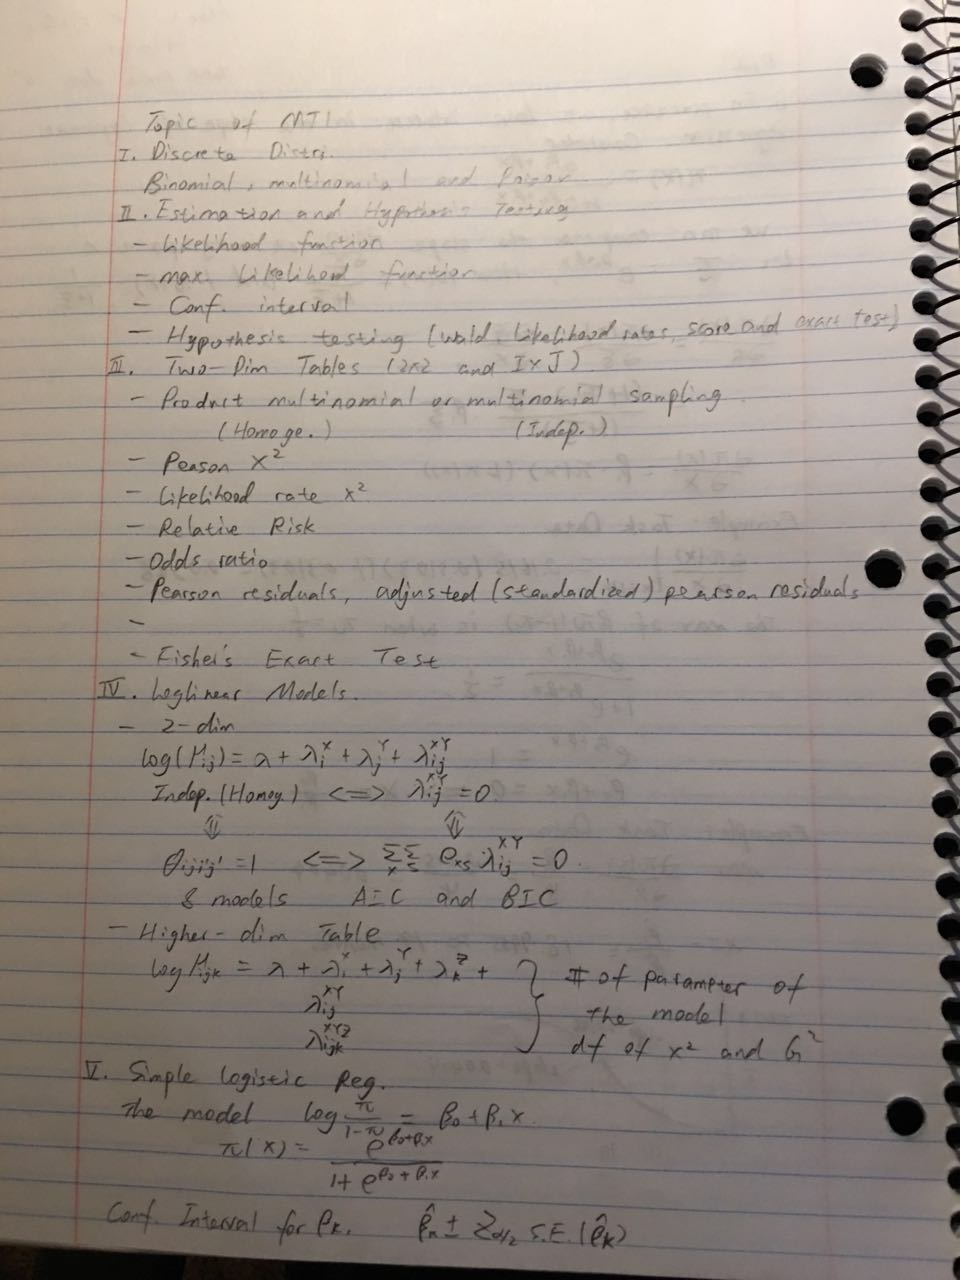 Topic of MT1
I. Discrete Distri.
Binomial, multinomial and Poison
II. Estimation and Hypothesis Testing
- Likelihood function
- max. Likelihood function
- Conf. interval
- Hypothesis testing (Wald, Likelihood rates, score and exact test)
III. Two-Dim Tables (2x2 and IxJ)
- Product multinomial or multinomial sampling
(Homoge.) (Indep.)
- Peason X²
- Likelihood rate x²
- Relative Risk
- Odds ratio
- Pearson residuals, adjusted (standardized) pearson residuals
-
- Fisher's Exact Test
IV. Loglinear Models.
- 2-dim
log(μij) = λ + λi^X + λj^Y + λij^XY
Indep. (Homog.) <=> λij^XY = 0.
⇕ ⇕
θiji'j' = 1 <=> ΣΣ λij^XY = 0.
8 models AIC and BIC
- Higher-dim Table
log μijk = λ + λi^X + λj^Y + λk^Z + } # of parameter of
λij^XY the model
λijk^XYZ df of x² and G²
V. Simple Logistic Reg.
The model log π/(1-π) = β₀ + β₁x.
π(x) = e^(β₀+β₁x) / (1 + e^(β₀+β₁x))
Conf. Interval for βk. β̂k ± Zα/2 S.E.(β̂k)